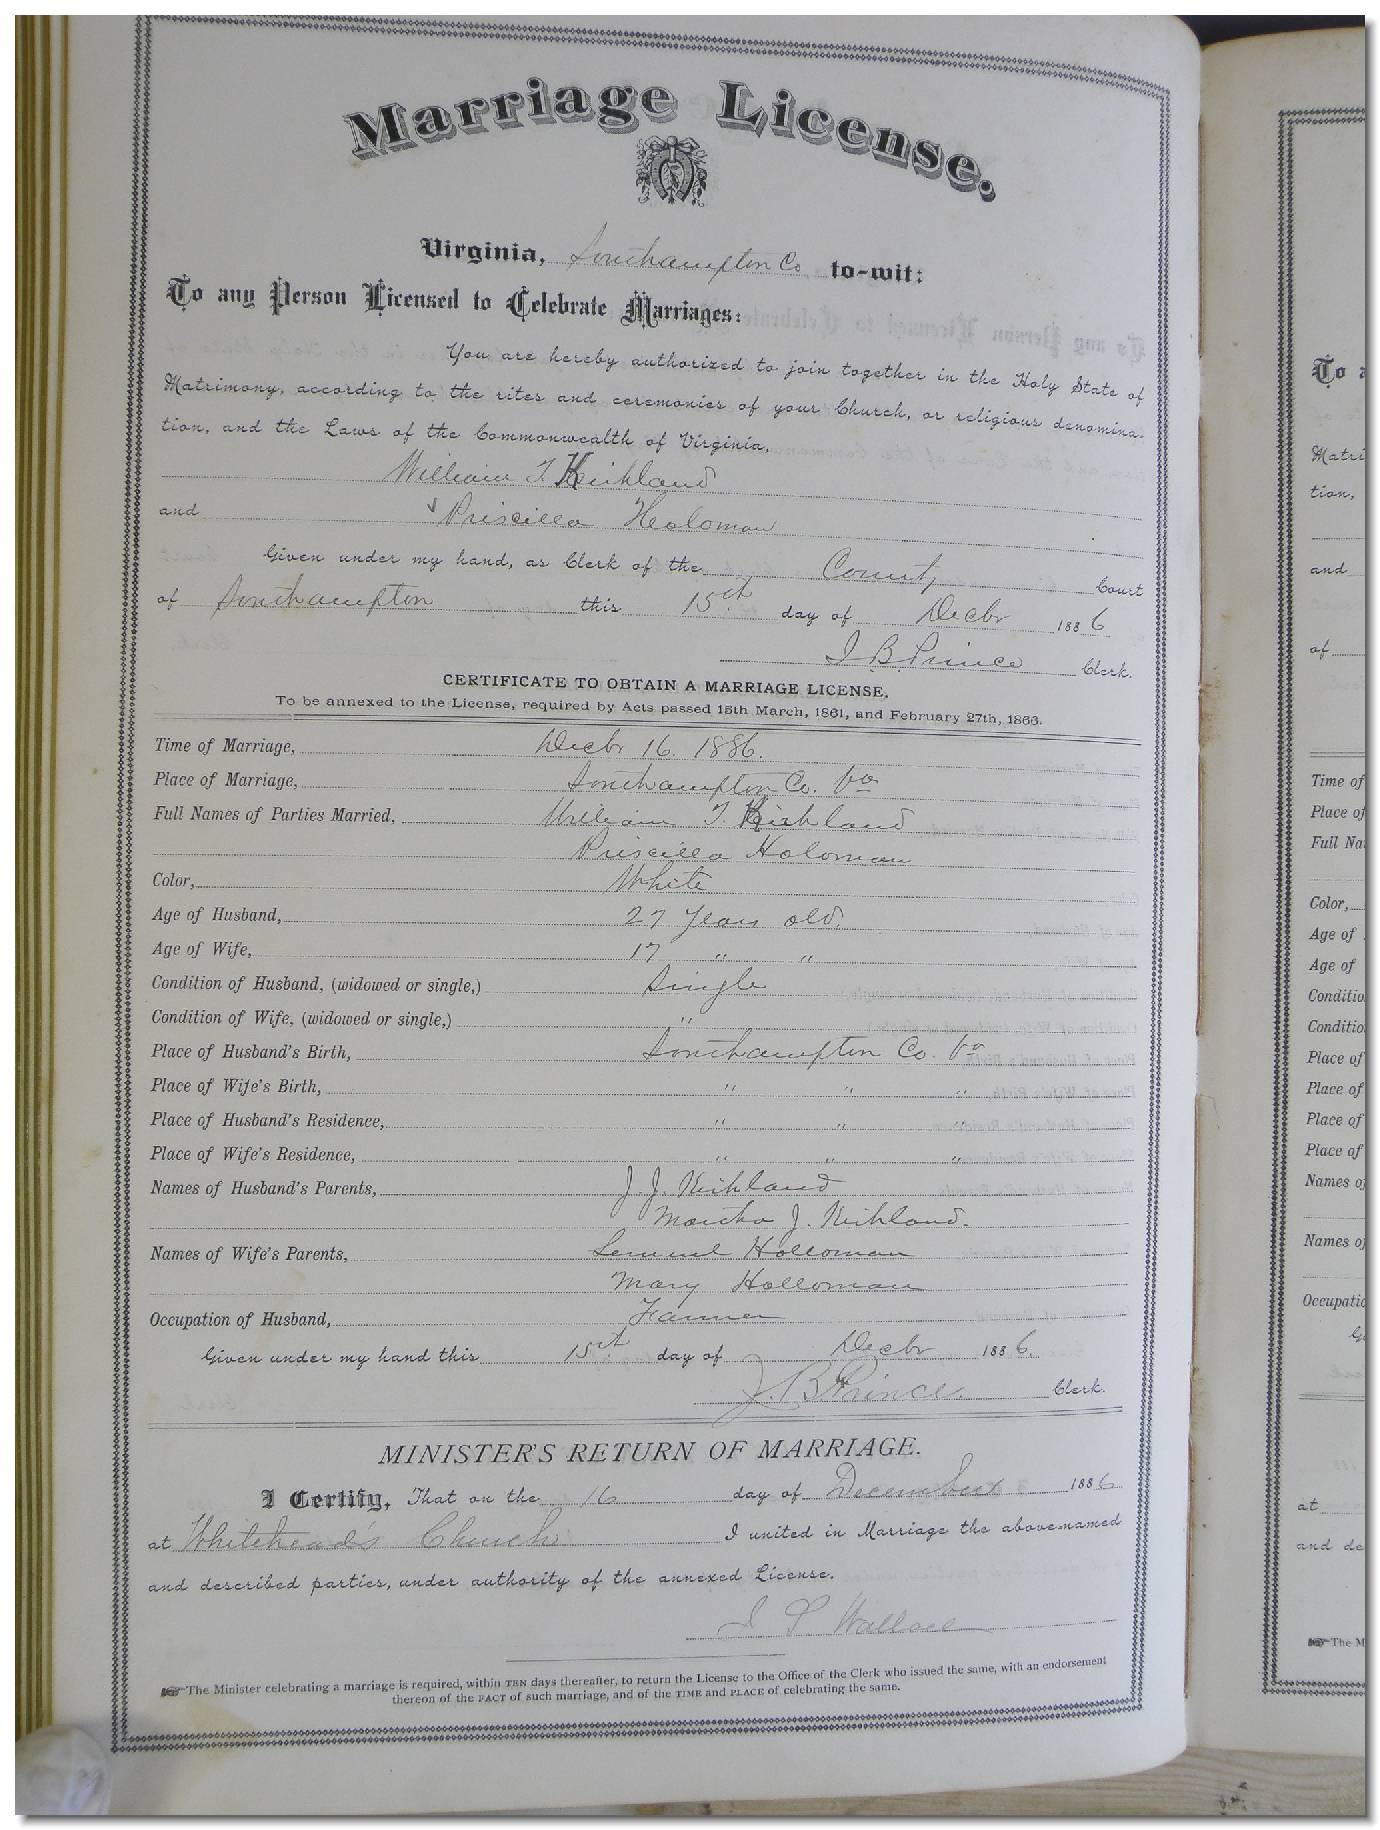 Marriage License.
Virginia, Southampton Co to-wit:
To any Person Licensed to Celebrate Marriages:
You are hereby authorized to join together in the Holy State of
Matrimony, according to the rites and ceremonies of your Church, or religious denomina-
tion, and the Laws of the Commonwealth of Virginia,
William T. Kirkland
and Priscilla Holoman
Given under my hand, as Clerk of the County Court
of Southampton this 15th day of Decbr 1886
J B Prince Clerk.
CERTIFICATE TO OBTAIN A MARRIAGE LICENSE,
To be annexed to the License, required by Acts passed 15th March, 1861, and February 27th, 1866.
Time of Marriage, Decbr 16. 1886.
Place of Marriage, Southampton Co. Va
Full Names of Parties Married, William T. Kirkland
Priscilla Holoman
Color, White
Age of Husband, 27 Years old.
Age of Wife, 17 " "
Condition of Husband, (widowed or single,) Single
Condition of Wife, (widowed or single,) "
Place of Husband's Birth, Southampton Co. Va
Place of Wife's Birth, " " "
Place of Husband's Residence, " " "
Place of Wife's Residence, " " "
Names of Husband's Parents, J. J. Kirkland
Martha J. Kirkland.
Names of Wife's Parents, Lemuel Holloman
Mary Holloman
Occupation of Husband, Farmer
Given under my hand this 15th day of Decbr 1886.
J. B Prince Clerk.
MINISTER'S RETURN OF MARRIAGE.
I Certify, That on the 16 day of December 1886
at Whitehead's Church I united in Marriage the above-named
and described parties, under authority of the annexed License.
J S Wallace
The Minister celebrating a marriage is required, within TEN days thereafter, to return the License to the Office of the Clerk who issued the same, with an endorsement
thereon of the FACT of such marriage, and of the TIME and PLACE of celebrating the same.
To a
Matri
tion,
and
of
Time of
Place of
Full Na
Color,
Age of
Age of
Conditio
Conditio
Place of
Place of
Place of
Place of
Names o
Names o
Occupatio
G
at
and de
The M